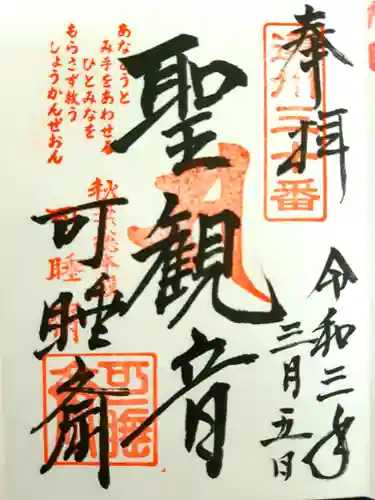 奉拝
遠州三十三番
令和三年
三月五日
聖観音
あなとうと
み手をあわせる
ひとみなを
もらさず救う
しょうかんぜおん
可睡斎